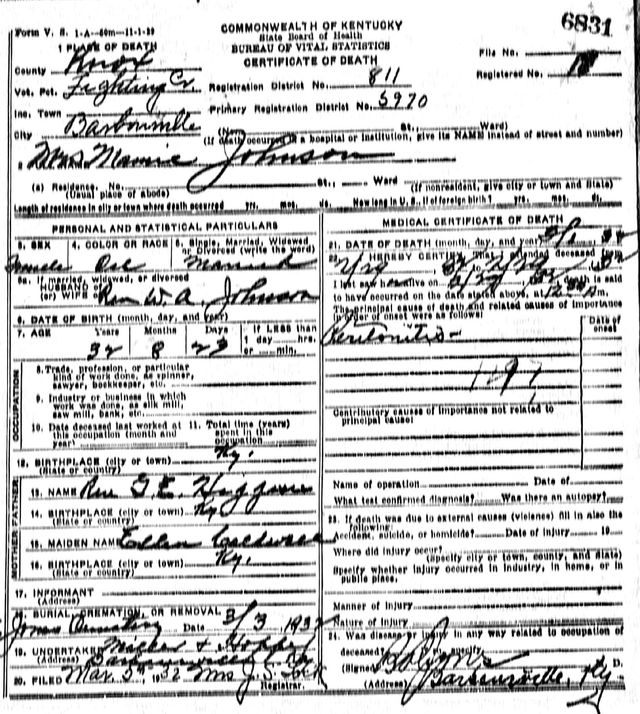 Form V. S. 1-A--50m--11-1-29
6831
COMMONWEALTH OF KENTUCKY
State Board of Health
BUREAU OF VITAL STATISTICS
CERTIFICATE OF DEATH
1 PLACE OF DEATH
County Knox
File No.
Registered No.
Vot. Pct. Fighting Cr.
Registration District No. 811
Inc. Town
Primary Registration District No. 5970
City Barbourville (No. St., Ward)
(If death occurred in a hospital or institution, give its NAME instead of street and number)
2 Mrs. Mamie Johnson
(a) Residence. No. St., Ward
(Usual place of abode) (If nonresident, give city or town and State)
Length of residence in city or town where death occurred yrs. mos. ds. How long in U. S., if of foreign birth? yrs. mos. ds.
PERSONAL AND STATISTICAL PARTICULARS
3. SEX 4. COLOR OR RACE 5. Single, Married, Widowed
or Divorced (write the word)
Female Married
5a. If married, widowed, or divorced
HUSBAND of
(or) WIFE of Rev W. A. Johnson
6. DATE OF BIRTH (month, day, and year)
7. AGE Years Months Days If LESS than
1 day hrs.
or min.
32 8 23
OCCUPATION
8. Trade, profession, or particular
kind of work done, as spinner,
sawyer, bookkeeper, etc.
9. Industry or business in which
work was done, as silk mill,
saw mill, bank, etc.
10. Date deceased last worked at
this occupation (month and
year)
11. Total time (years)
spent in this
occupation
12. BIRTHPLACE (city or town) Ky.
(State or country)
FATHER
13. NAME Rev G. E.
14. BIRTHPLACE (city or town) Ky
(State or country)
MOTHER
15. MAIDEN NAME Ellen
16. BIRTHPLACE (city or town) Ky.
(State or country)
17. INFORMANT
(Address)
18. BURIAL, CREMATION, OR REMOVAL
Jones Cemetery Date 3/3 1932
19. UNDERTAKER Miller & Hopper
(Address) Barbourville, Ky
20. FILED Mar. 5th, 1932 Mrs J. S.
Registrar.
MEDICAL CERTIFICATE OF DEATH
21. DATE OF DEATH (month, day, and year)
22. I HEREBY CERTIFY, That I attended deceased from
I last saw h alive on death is said
to have occurred on the date stated above, at m.
The principal cause of death and related causes of importance
in order of onset were as follows:
Date of
onset
Peritonitis
Contributory causes of importance not related to
principal cause:
Name of operation Date of
What test confirmed diagnosis? Was there an autopsy?
23. If death was due to external causes (violence) fill in also the
following:
Accident, suicide, or homicide? Date of injury 19
Where did injury occur?
(Specify city or town, county, and State)
Specify whether injury occurred in industry, in home, or in
public place.
Manner of Injury
Nature of Injury
24. Was disease or injury in any way related to occupation of
deceased?
(Signed) D.
(Address) Barbourville, Ky.